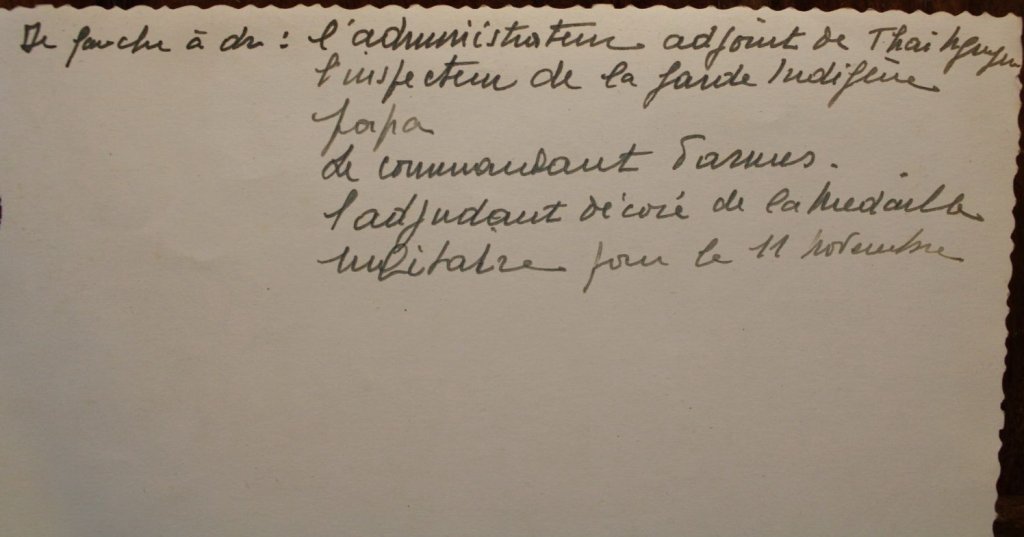 De gauche à dr : l'administrateur adjoint de Thai Nguyen
l'inspecteur de la garde Indigène
papa
Le commandant Darmes.
l'adjudant décoré de la Médaille
militaire pour le 11 novembre